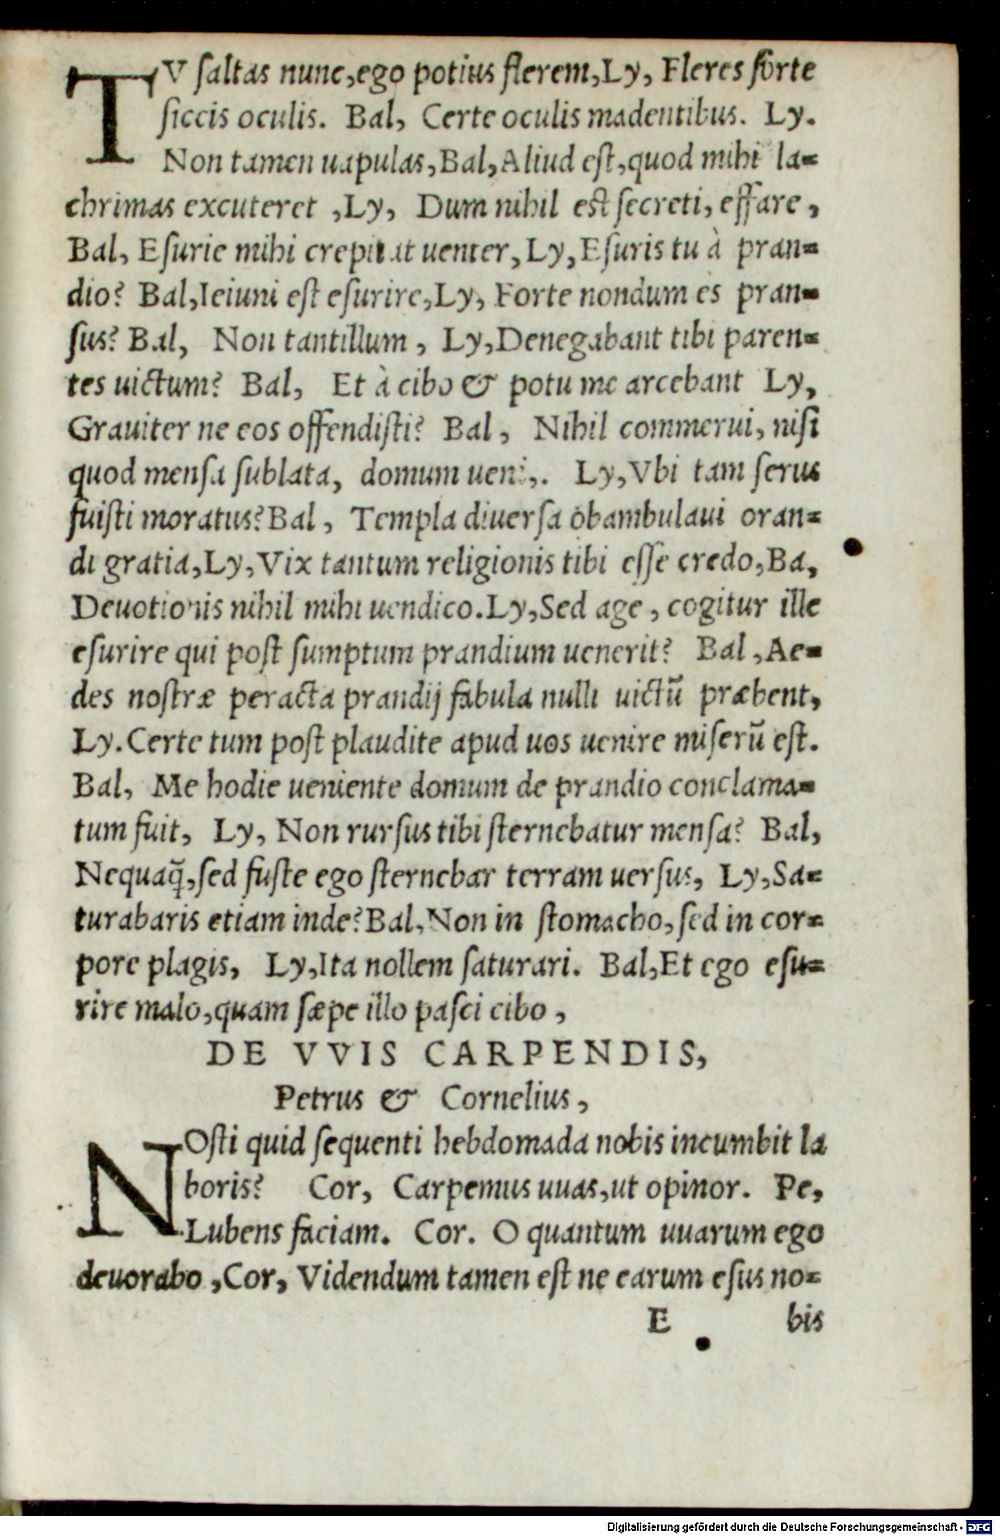 TV ſaltas nunc,ego potius flerem,Ly, Fleres forte
ſiccis oculis. Bal, Certe oculis madentibus. Ly.
Non tamen uapulas,Bal,Aliud eſt,quod mihi la=
chrimas excuteret ,Ly, Dum nihil eſt ſecreti, effare ,
Bal, Eſurie mihi crepitat uenter, Ly,Eſuris tu à pran=
dio? Bal,Ieiuni eſt eſurire,Ly, Forte nondum es pran=
ſus? Bal, Non tantillum , Ly,Denegabant tibi paren=
tes uictum? Bal, Et à cibo & potu me arcebant Ly,
Grauiter ne eos offendiſti? Bal , Nihil commerui, niſi
quod menſa ſublata, domum ueni,. Ly,Vbi tam ſerus
fuiſti moratus? Bal , Templa diuerſa obambulaui oran=
di gratia,Ly,Vix tantum religionis tibi eſſe credo,Ba,
Deuotionis nihil mihi uendico.Ly,Sed age , cogitur ille
eſurire qui poſt ſumptum prandium uenerit? Bal ,Ae=
des noſtræ peracta prandij fabula nulli uictū præbent,
Ly.Certe tum poſt plaudite apud uos uenire miſerū eſt.
Bal, Me hodie ueniente domum de prandio conclama=
tum fuit, Ly, Non rurſus tibi ſternebatur menſa? Bal,
Nequaq̃,ſed fuſte ego ſternebar terram uerſus, Ly,Sa=
turabaris etiam inde?Bal,Non in ſtomacho,ſed in cor=
pore plagis, Ly,Ita nollem ſaturari. Bal,Et ego eſu=
rire malo,quam ſæpe illo paſci cibo ,
DE VVIS CARPENDIS,
Petrus & Cornelius ,
NOſti quid ſequenti hebdomada nobis incumbit la
boris? Cor, Carpemus uuas,ut opinor. Pe,
Lubens faciam. Cor. O quantum uuarum ego
deuorabo ,Cor, Videndum tamen eſt ne earum eſus no=
E bis
Digitalisierung gefördert durch die Deutsche Forschungsgemeinschaft - DFG